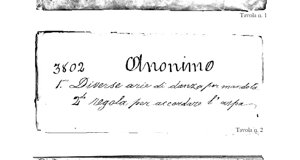 Tavola n. 1
3802 Anonimo
1. Diverse arie di danza per mandola
2ª regola per accordare l'arpa
Tavola n. 2